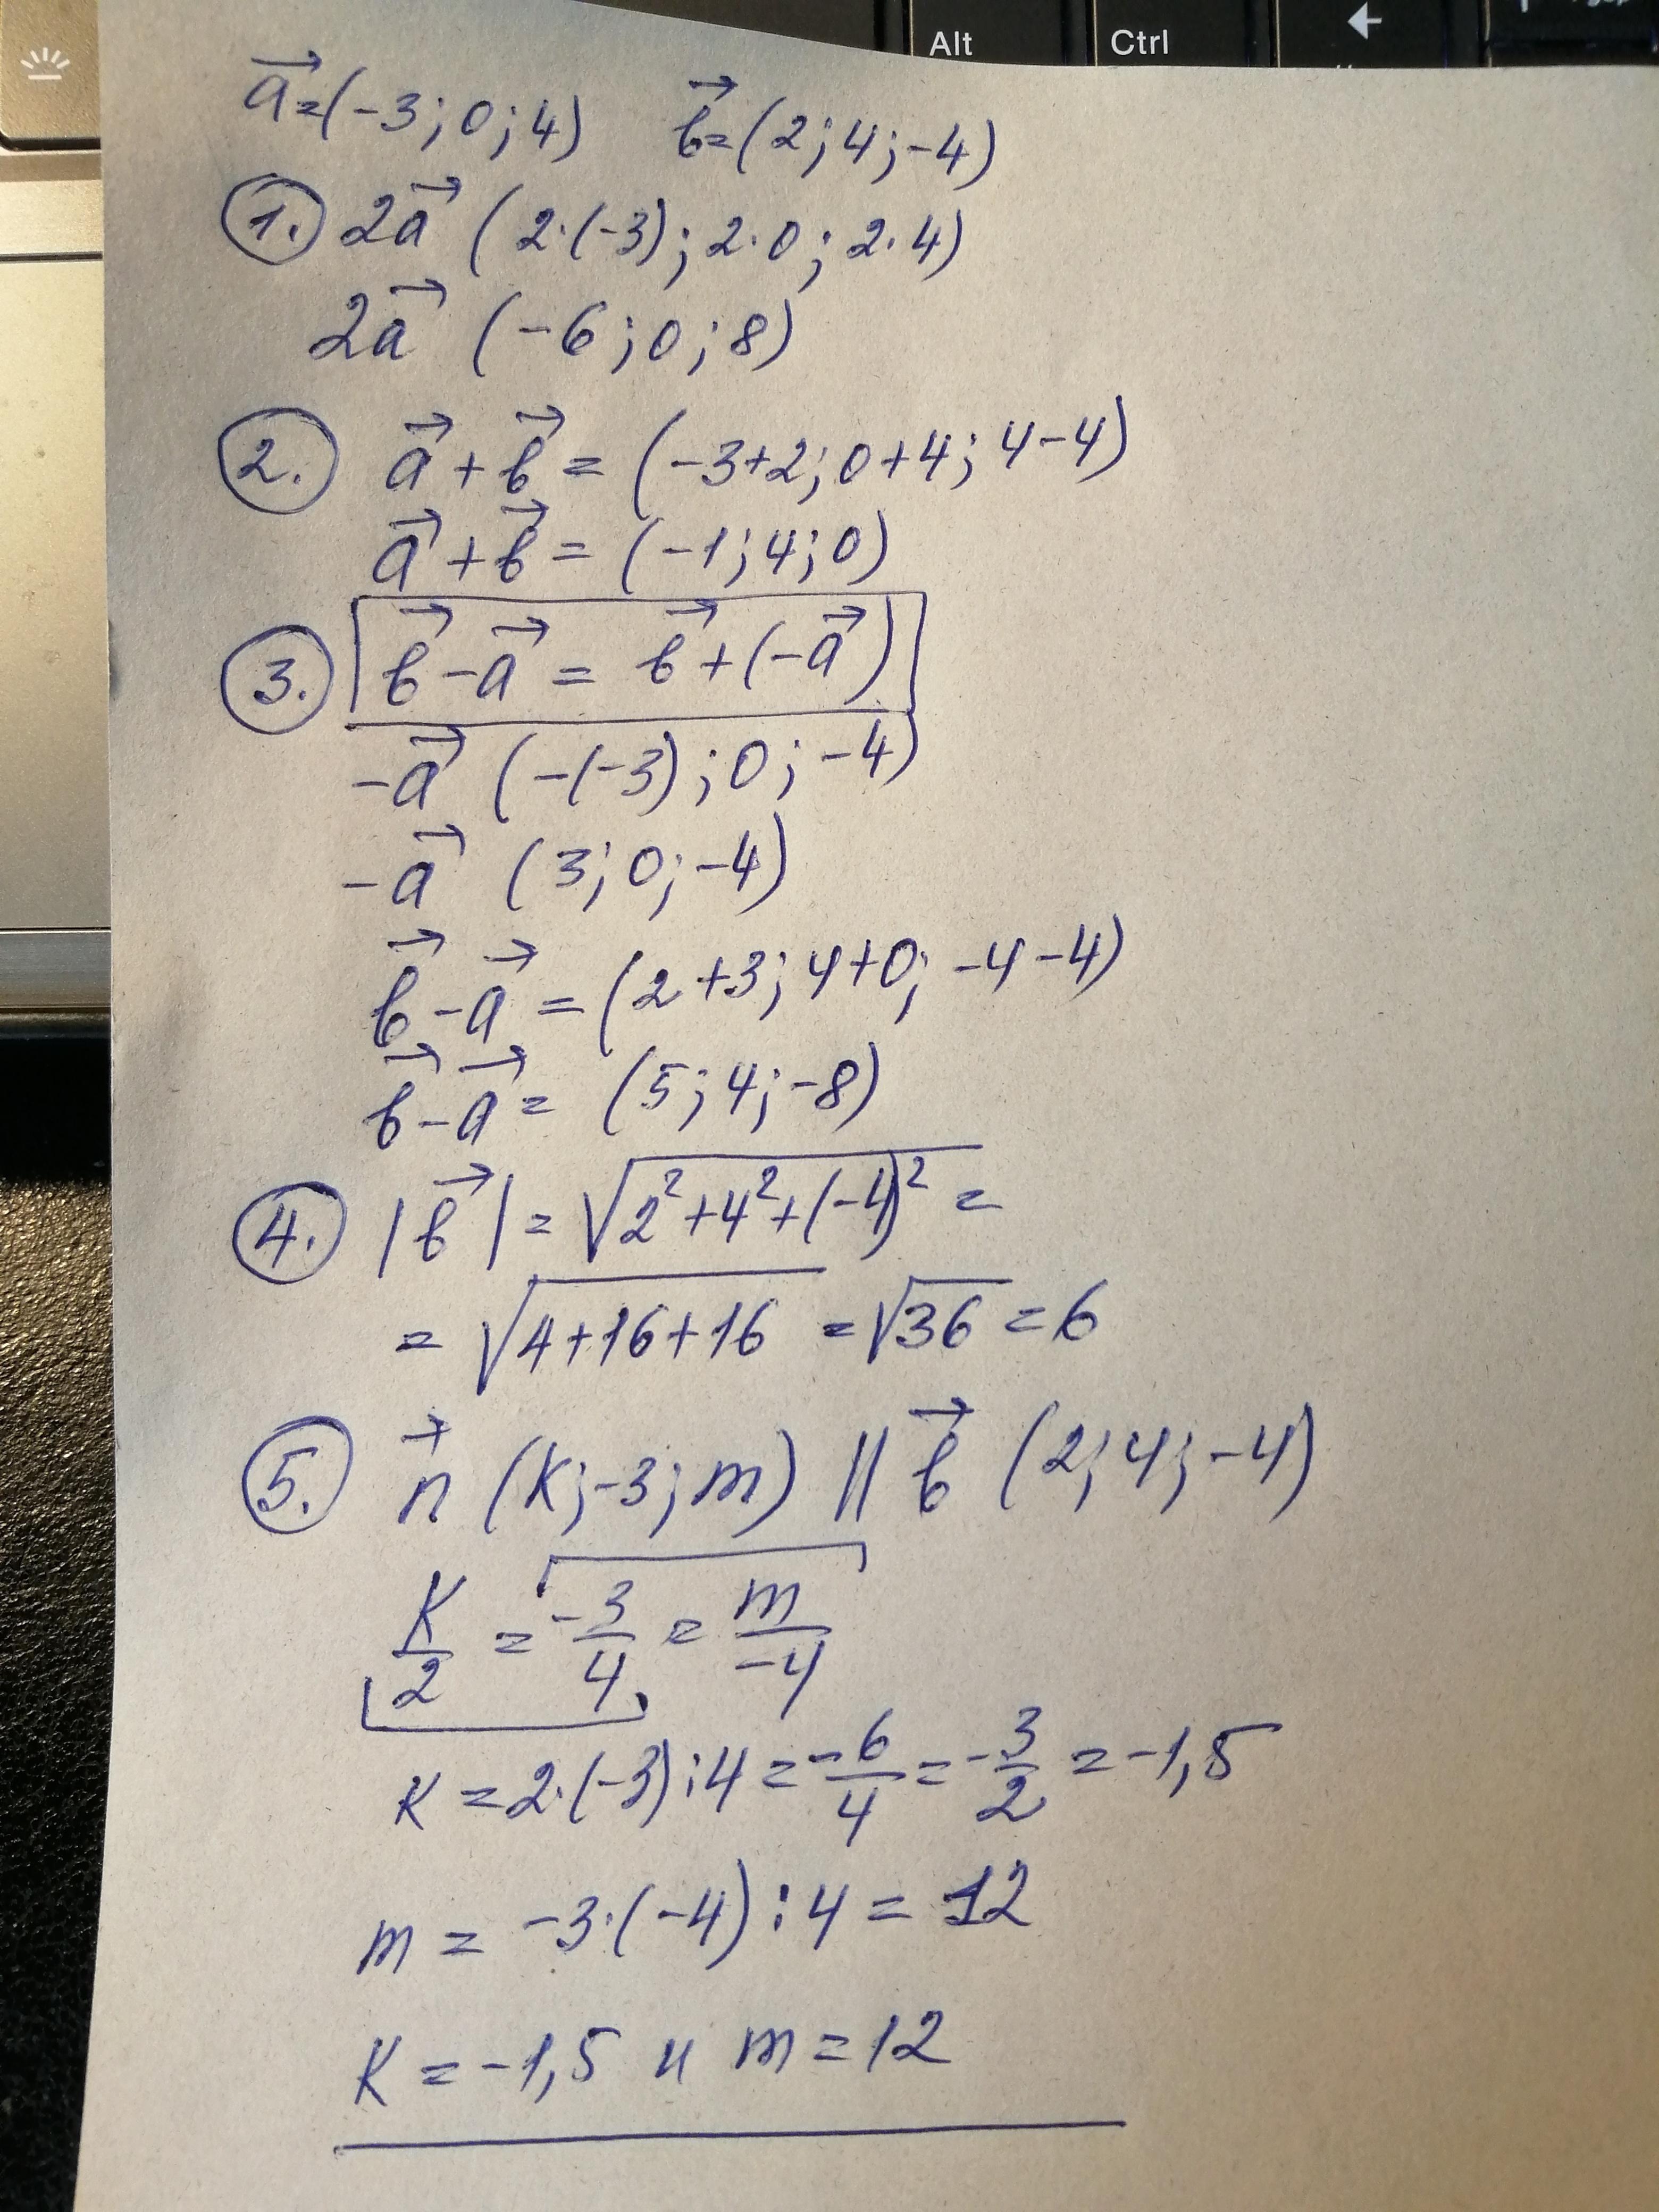 Alt Ctrl ←
a⃗=(-3;0;4) b⃗=(2;4;-4)
1. 2a⃗ (2·(-3);2·0;2·4)
2a⃗ (-6;0;8)
2. a⃗+b⃗=(-3+2;0+4;4-4)
a⃗+b⃗=(-1;4;0)
3. b⃗-a⃗=b⃗+(-a⃗)
-a⃗ (-(-3);0;-4)
-a⃗ (3;0;-4)
b⃗-a⃗=(2+3;4+0;-4-4)
b⃗-a⃗=(5;4;-8)
4. |b⃗|=√(2²+4²+(-4)²)=
=√(4+16+16)=√36=6
5. n⃗ (к;-3;m) || b⃗ (2;4;-4)
к/2=-3/4=m/-4
к=2·(-3):4=-6/4=-3/2=-1,5
m=-3·(-4):4=12
к=-1,5 и m=12